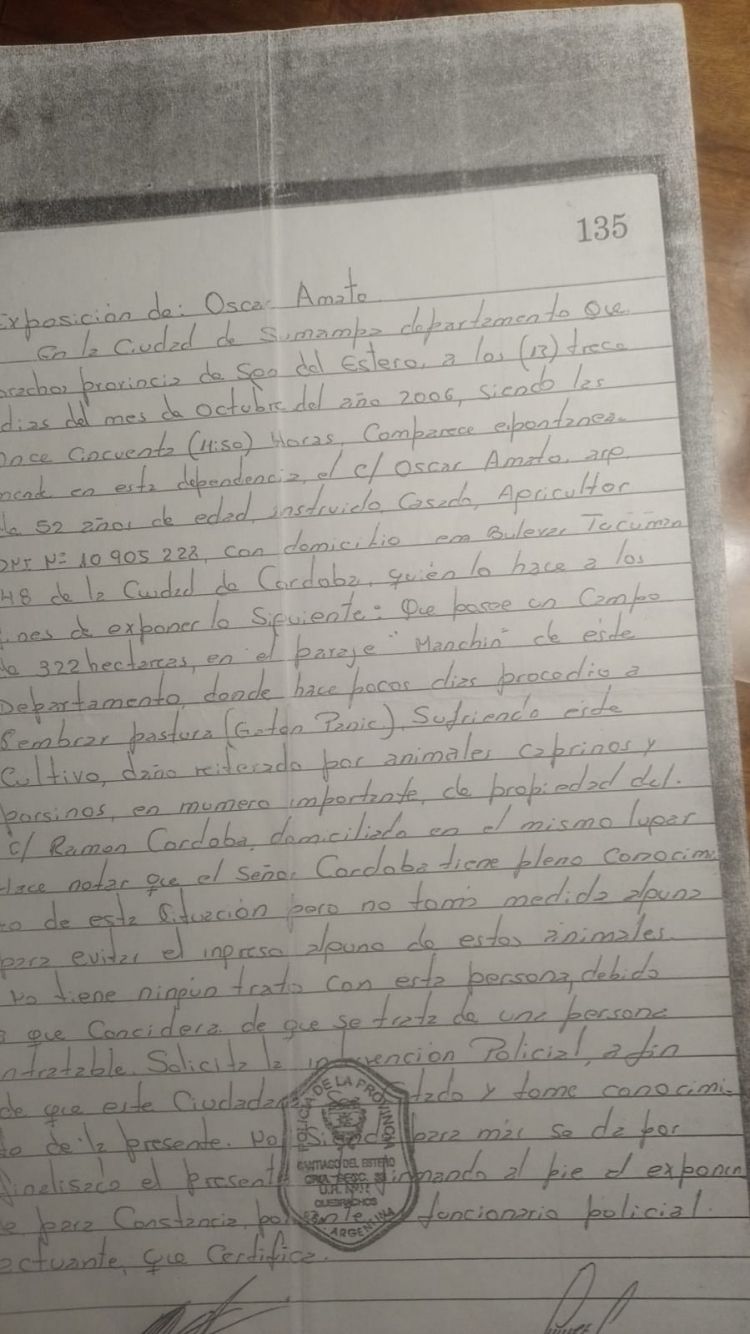 135
Exposición de: Oscar Amato
En la Ciudad de Sumampa departamento Que
brachos provincia de Sgo del Estero, a los (13) trece
dias del mes de Octubre del año 2006, siendo las
Once Cincuenta (11:50) Horas, Comparece espontanea-
en esta dependencia, el c/ Oscar Amato, arg.
de 52 años de edad, instruido, Casado, Agricultor
DNI Nº 10 905 228, con domicilio em Bulever Tucumán
48 de la Ciudad de Cordoba, quién lo hace a los
ines de exponer lo Siguiente: Que posee un Campo
de 322 hectareas, en el paraje "Manchin" de este
Departamento, donde hace pocos dias procedio a
Sembrar pastura (Gaton Panic), Sufriendo este
Cultivo, daño reiterado por animales caprinos y
porsinos, en mumero importante, de propiedad del.
c/ Ramon Cordoba, domiciliado en el mismo lugar
Hace notar que el Señor Cordoba tiene pleno Conocimi
to de esta Situación pero no tomó medida alguna
para evitar el ingreso alguno de estos animales.
No tiene ningún trato con esta persona, debido
a que Concidera de que se trata de una persona
intratable. Solicita la intervención Policial, a fin
de que este Ciudadano tado y tome conocimi-
to de la presente. No Siendo para más se da por
finalisado el presente firmando al pie el exponen
e para Constancia, por ante funcionario policial.
actuante, que Certifica.
POLICIA DE LA PROVINCIA
SANTIAGO DEL ESTERO
QUEBRACHOS
ARGENTINA